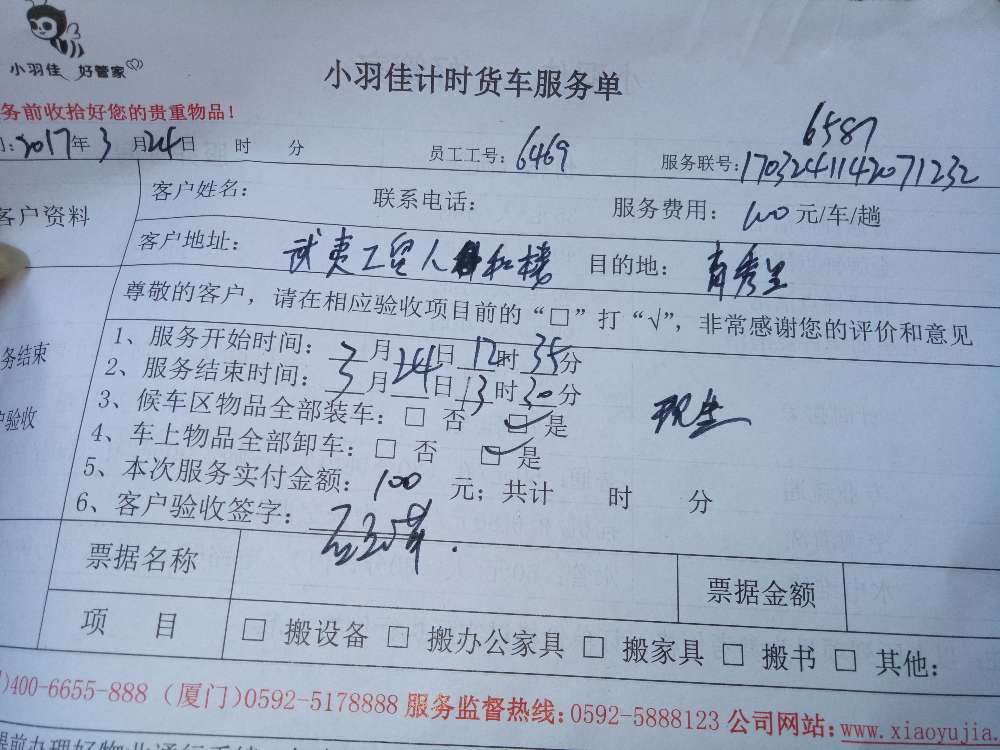 小羽佳 好管家
小羽佳计时货车服务单
务前收拾好您的贵重物品！
6587
:2017年3月24日 时 分 员工工号：6469 服务联号：170324114207 1232
客户资料 客户姓名： 联系电话： 服务费用：100元/车/趟
客户地址：武夷工贸人和楼 目的地：育秀里
尊敬的客户，请在相应验收项目前的“□”打“√”，非常感谢您的评价和意见
务结束
验收
1、服务开始时间：3月24日12时35分
2、服务结束时间：3月24日13时30分
3、候车区物品全部装车：□ 否 ☑ 是
现金
4、车上物品全部卸车：□ 否 ☑ 是
5、本次服务实付金额：100 元；共计 时 分
6、客户验收签字：
票据名称 票据金额
项 目 □ 搬设备 □ 搬办公家具 □ 搬家具 □ 搬书 □ 其他：
)400-6655-888（厦门)0592-5178888 服务监督热线:0592-5888123 公司网站:www.xiaoyujia.